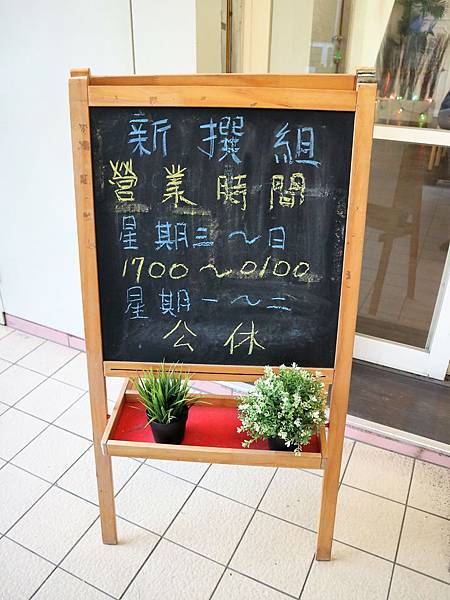 新撰組
營業時間
星期三～日
1700～0100
星期一～二
公休